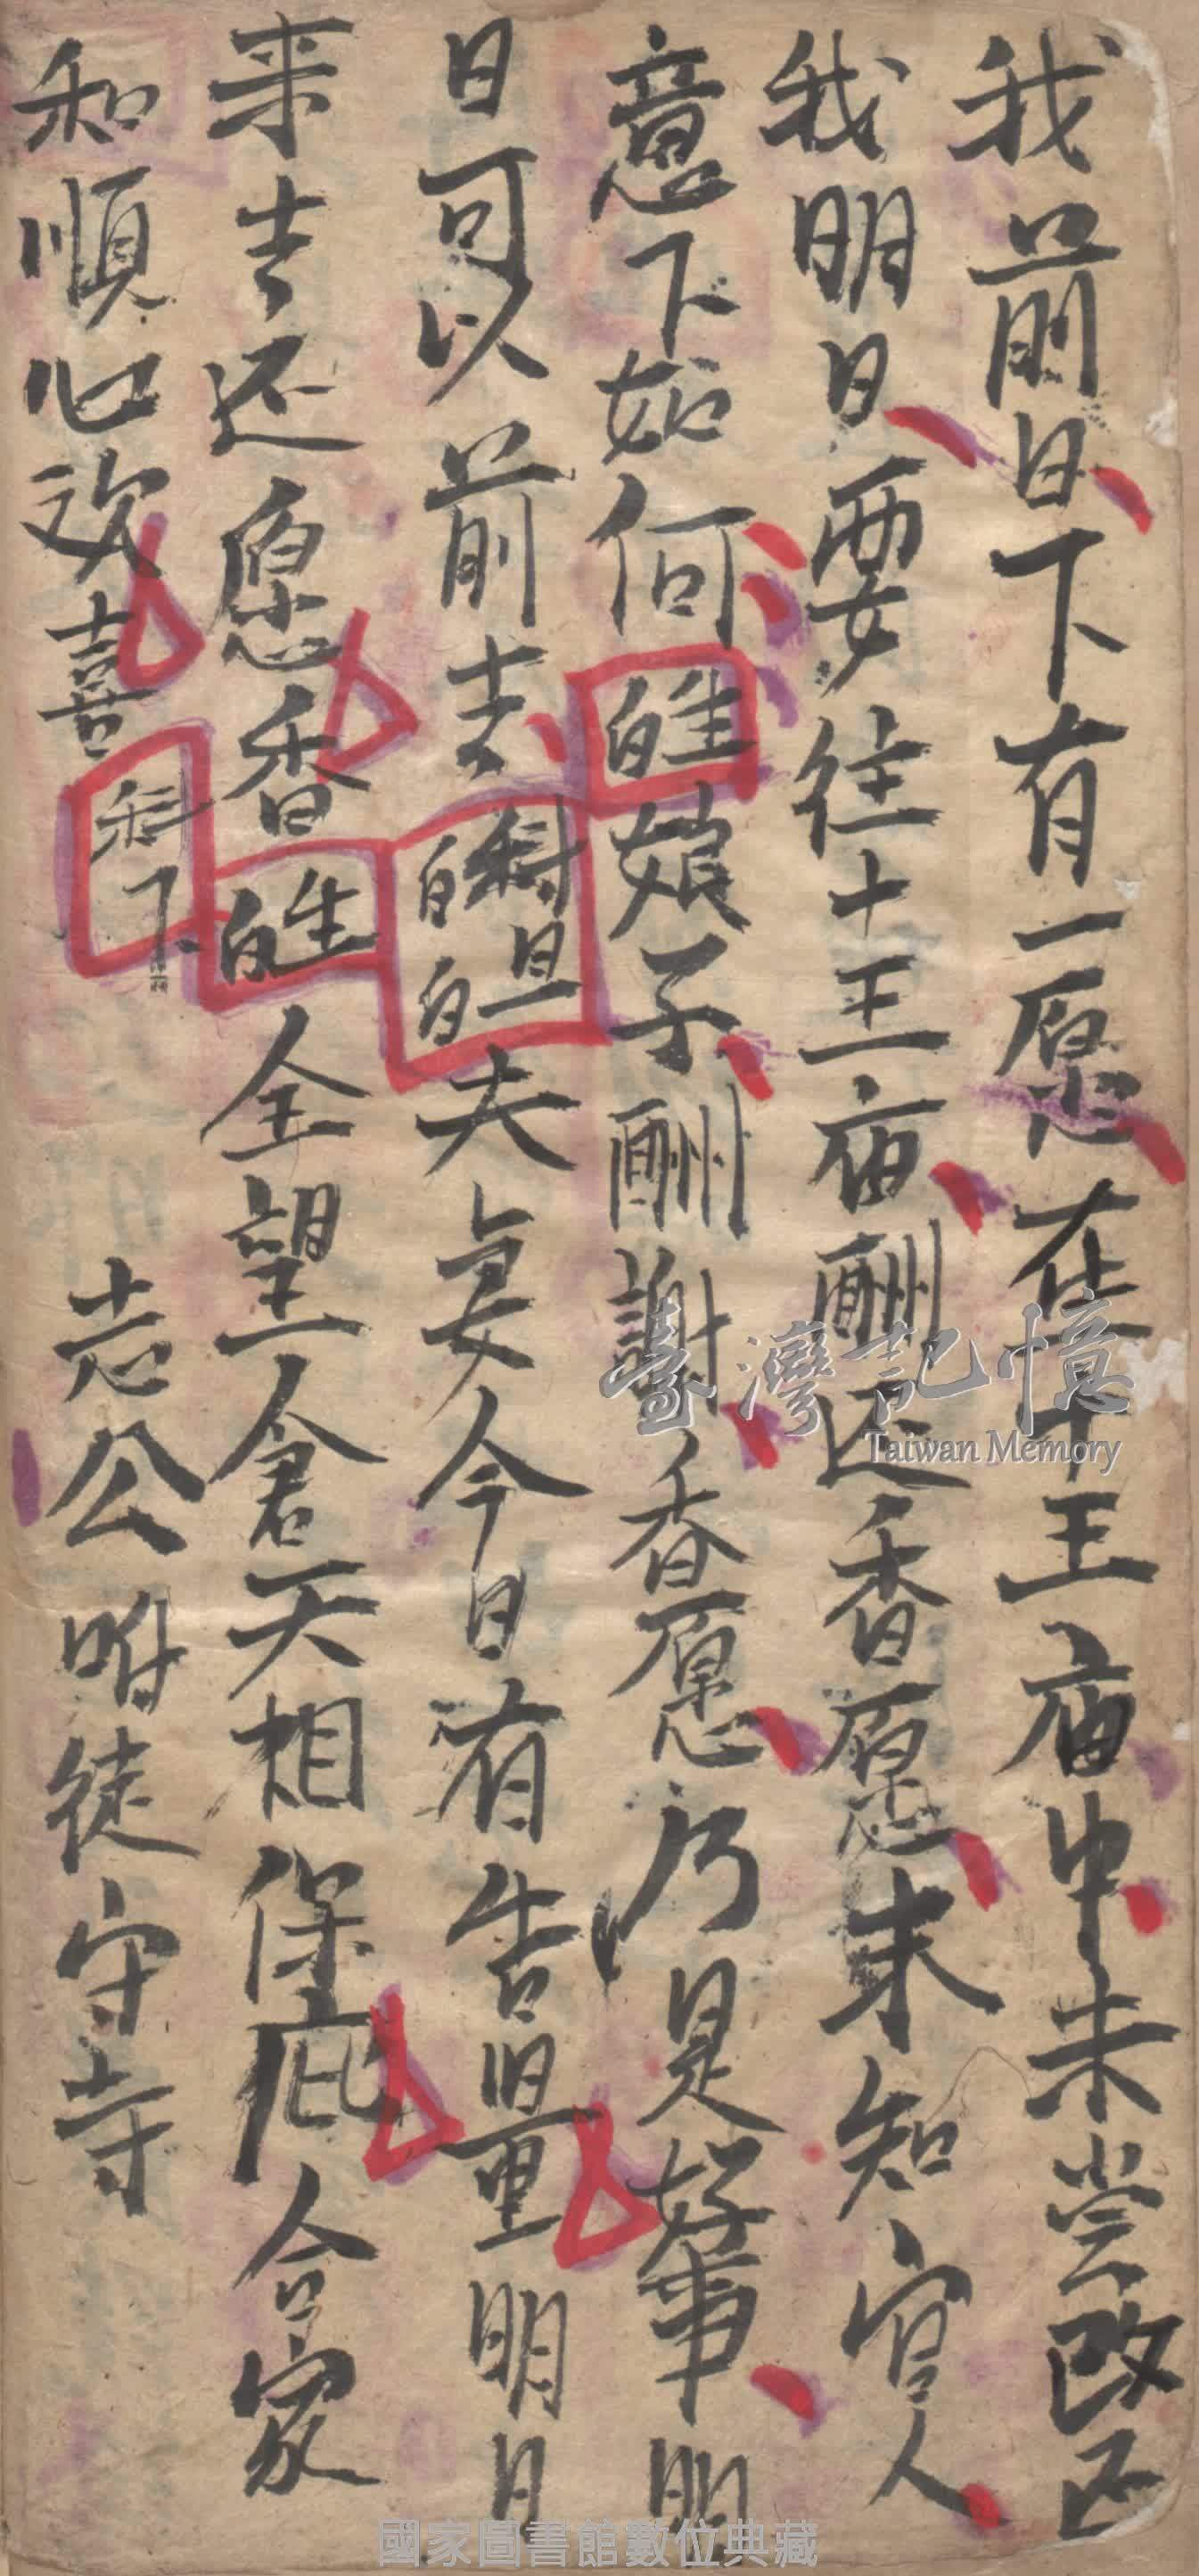 我前日下有一愿在十王庙中未尝改还
我明日要往十王庙酬还香愿未知官人
意下如何白生娘子酬謝香愿乃是好事明
日可以前去科旦白白夫妻今日有告量明日
来去还愿香白生全望倉天相保庇合家
和順心欢喜科下 志公咐徒守寺
臺灣記憶
Taiwan Memory
國家圖書館數位典藏